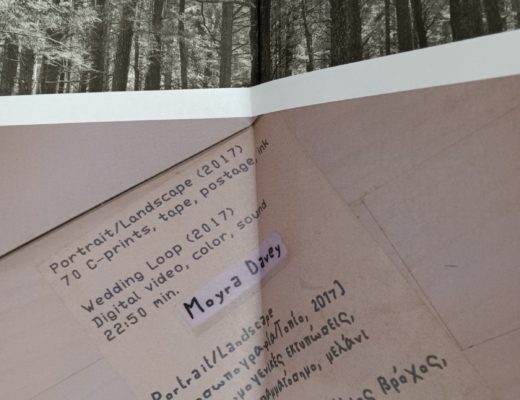 Portrait/Landscape (2017)
70 C-prints, tape, postage, ink
Wedding Loop (2017)
Digital video, color, sound
22:50 min.
Moyra Davey
Portrait/Landscape
2017)
εκτυπώσεις,
μελάνι
βρόχος,